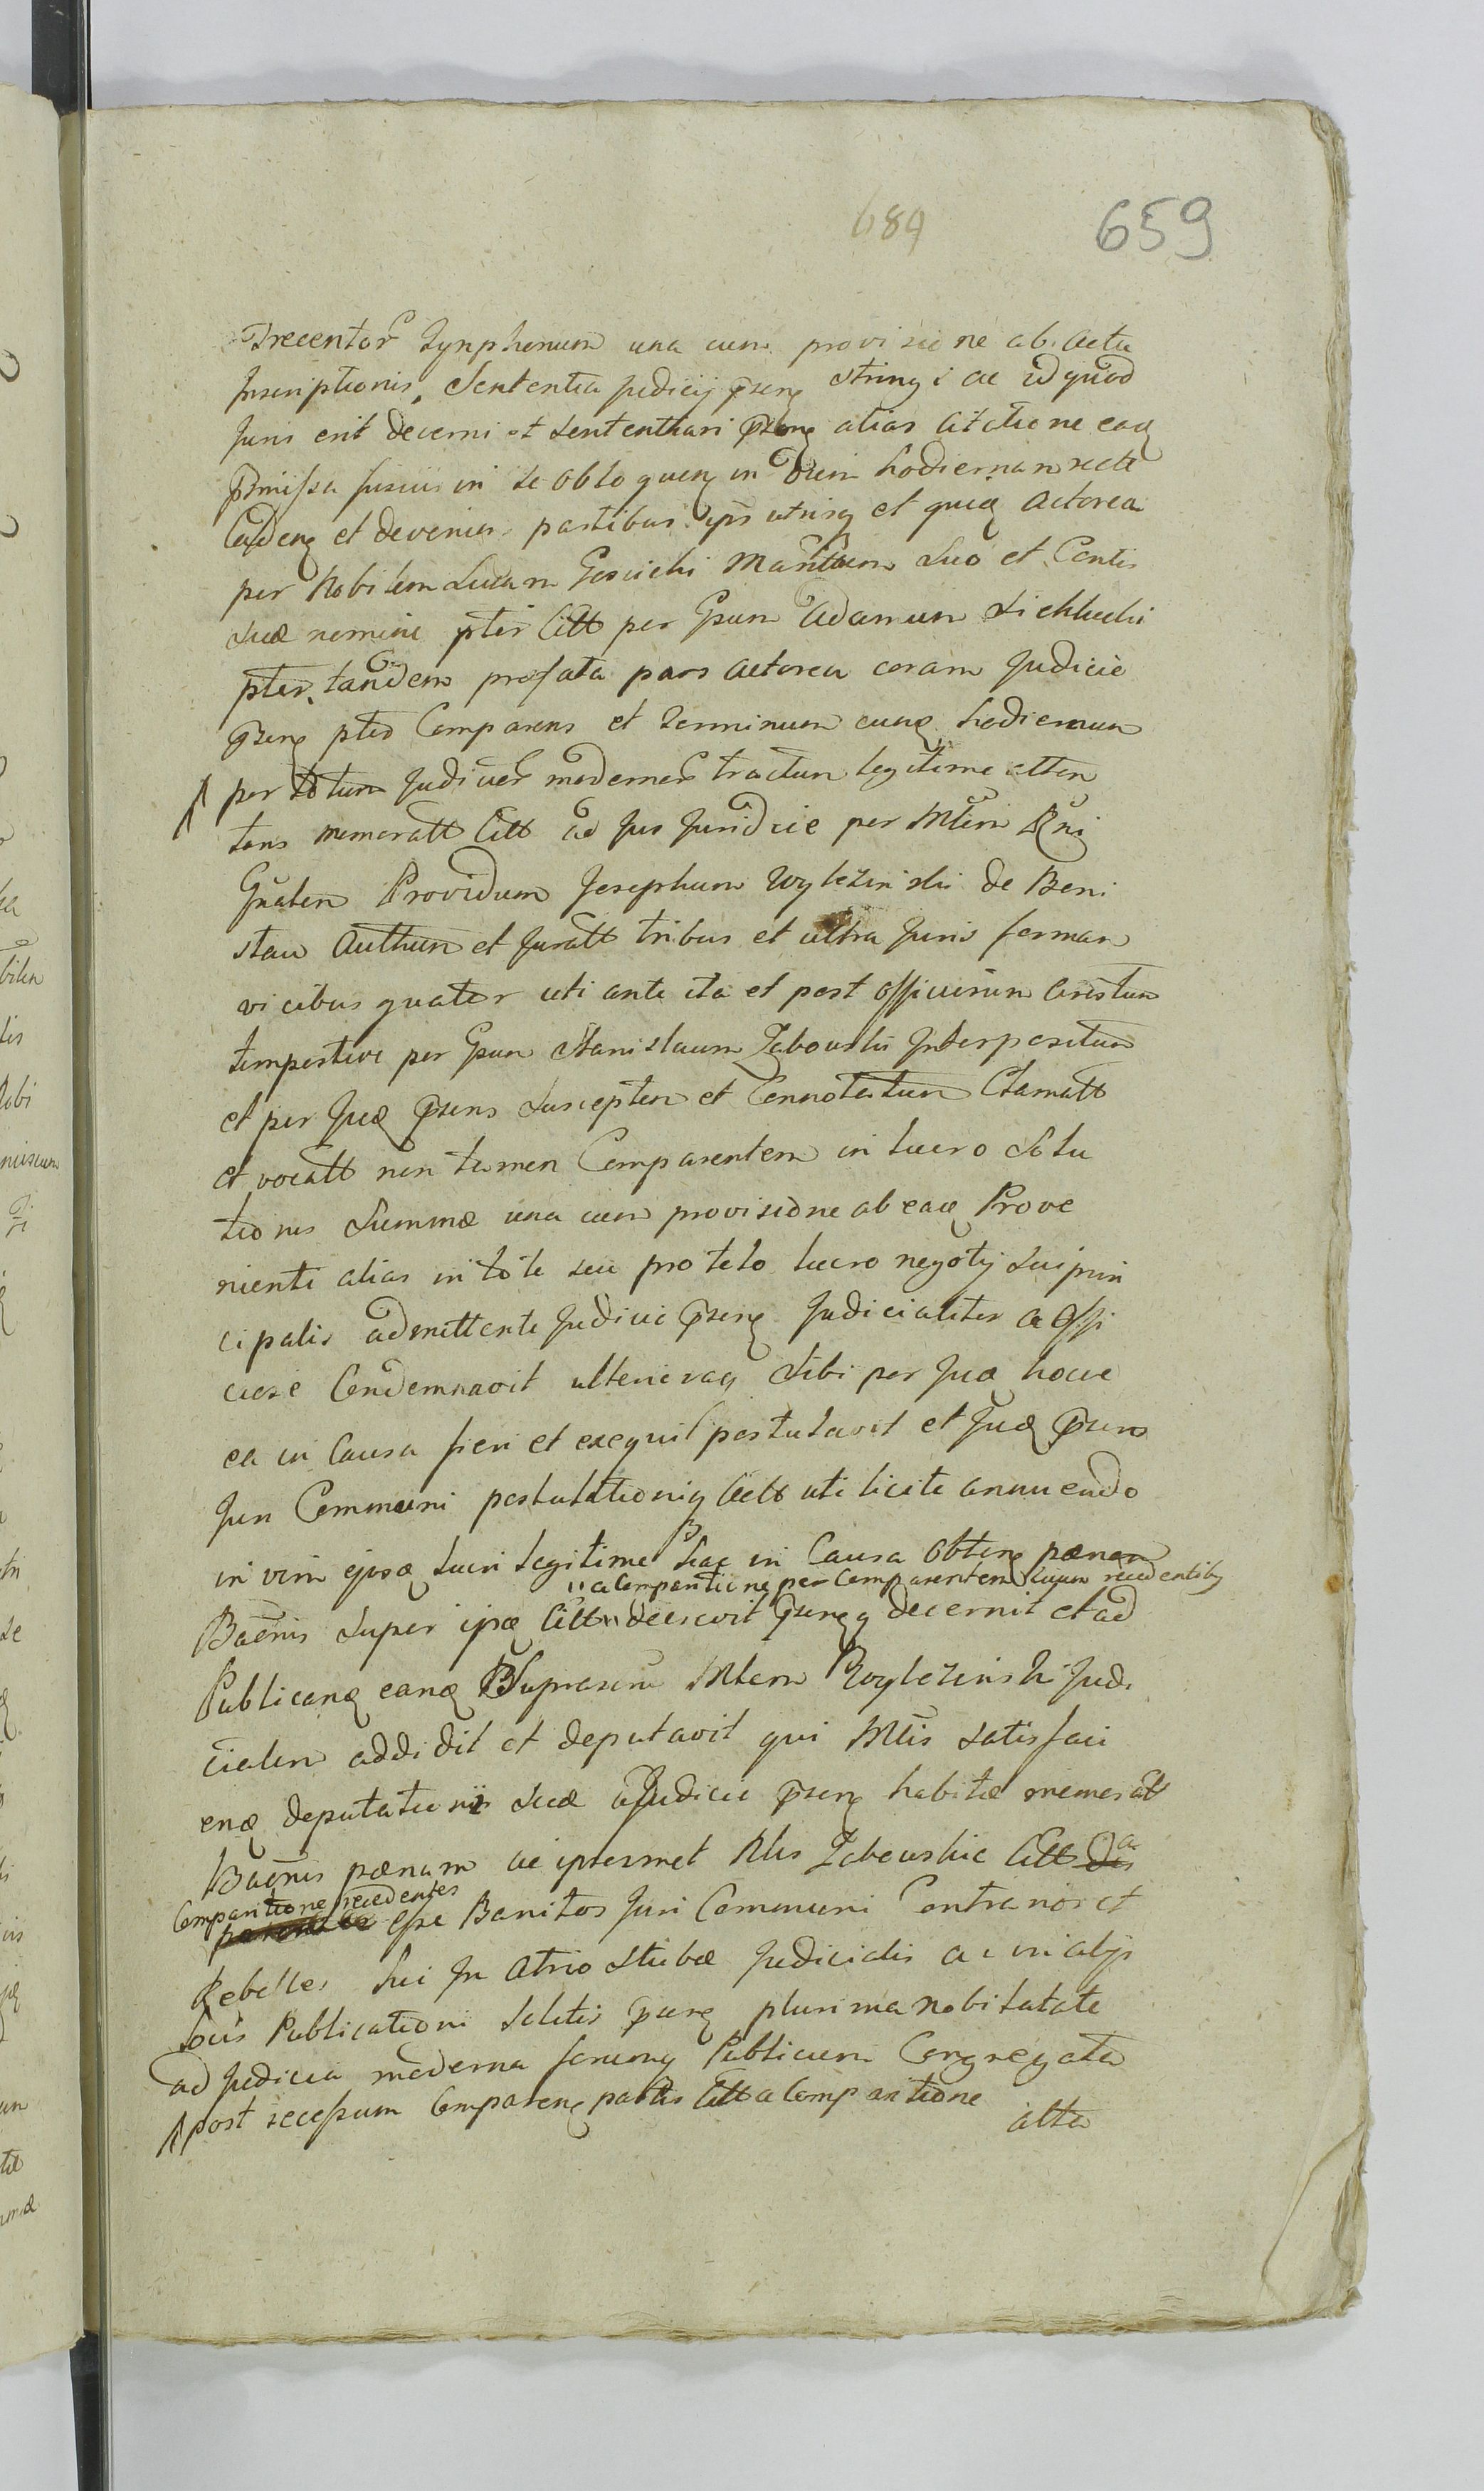 684 659
Trecentor Tynphonum una cum provisione ab actu
Inscriptionis, Sententia Judicij pseng stringi ac id quod
Juris erit decerni et sententiari pseng alias citatione eaq
pmissa fusius in se obloqueng in Diem hodiernam recte
Cadeng et devenien partibus ips utrisq et quidq Actorea
per Nobilem Lucam Gosiecki Mantaem suo et Contis
suæ nomine pter Citt per Gsum Adamum Sichlucki
pter, tandem prefata pars Actorea coram Judicio
pseng pted Comparens et Terminum eunq hodiernum
per totum Judicior modernor tractum legitime atten
tans memoratt Citt ad Jus Juridice per Mtlem Rni
Gnalem Providum Josephum Wylezinski de Beni
staw Authum et Juratt tribus et ultra Juris forman
vicibus quater uti ante ita et post officiosum Arestum
tempestive per Gsum Stanislaum Zabowski Interpositum
et per Judq psens susceptum et Connotatum Clamatt
et vocatt non tamen Comparentem in lucro solu
tionis Summæ una cum provisione ab eaq Prove
niente alias in toto seu pro toto lucro negotij sui prin
cipalis admittente Judicio pseng Judicialiter ac offi
ciose Condemnavit ulterioraq sibi per Judq hocce
ea in Causa fieri et exequi postulavit et Judq psens
Juri Communi postulationiq Actt uti licite annuendo
in vim ejusq lucri legitime hac in Causa obteng pænam
" a Comparitione per Comparentem suum recedentibq
Baenis super ipsq Citt " decrevit psengq decernit et ad
Publicanq eanq Suprascrin Mtlem Wylezinski Judi
cialem addidit et deputavit qui Mtlis satisfaci
enq deputationis suæ a Judicio pseng habitæ memoratt
Baenis pænam ac ipsosmet Mlis Zabowskie Citt a
Comparitione recedentes
esse Banitos Juri Communi Contranos et
Rebelles sui In Atrio Stubæ Judicialis ac in alijs
Locis Publicationi solitis pseng plurima nobilitate
ad Judicia moderna forumq Publicum Congregata
post recessum Compareng partis Citt a Comparitione
alta